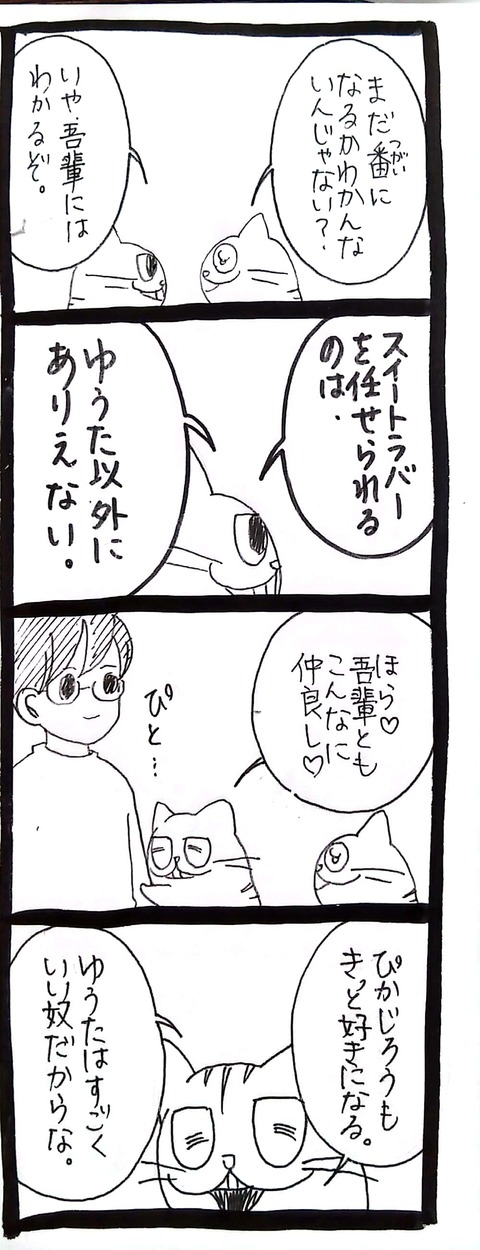 まだ番に
つがい
なるかわかんな
いんじゃない?
いや、吾輩には
わかるぞ。
スイートラバー
を任せられる
のは、
ゆうた以外に
ありえない。
ほら♡
吾輩とも
こんなに
仲良し♡
ぴと…
ぴかじろうも
きっと好きになる。
ゆうたはすごく
いい奴だからな。